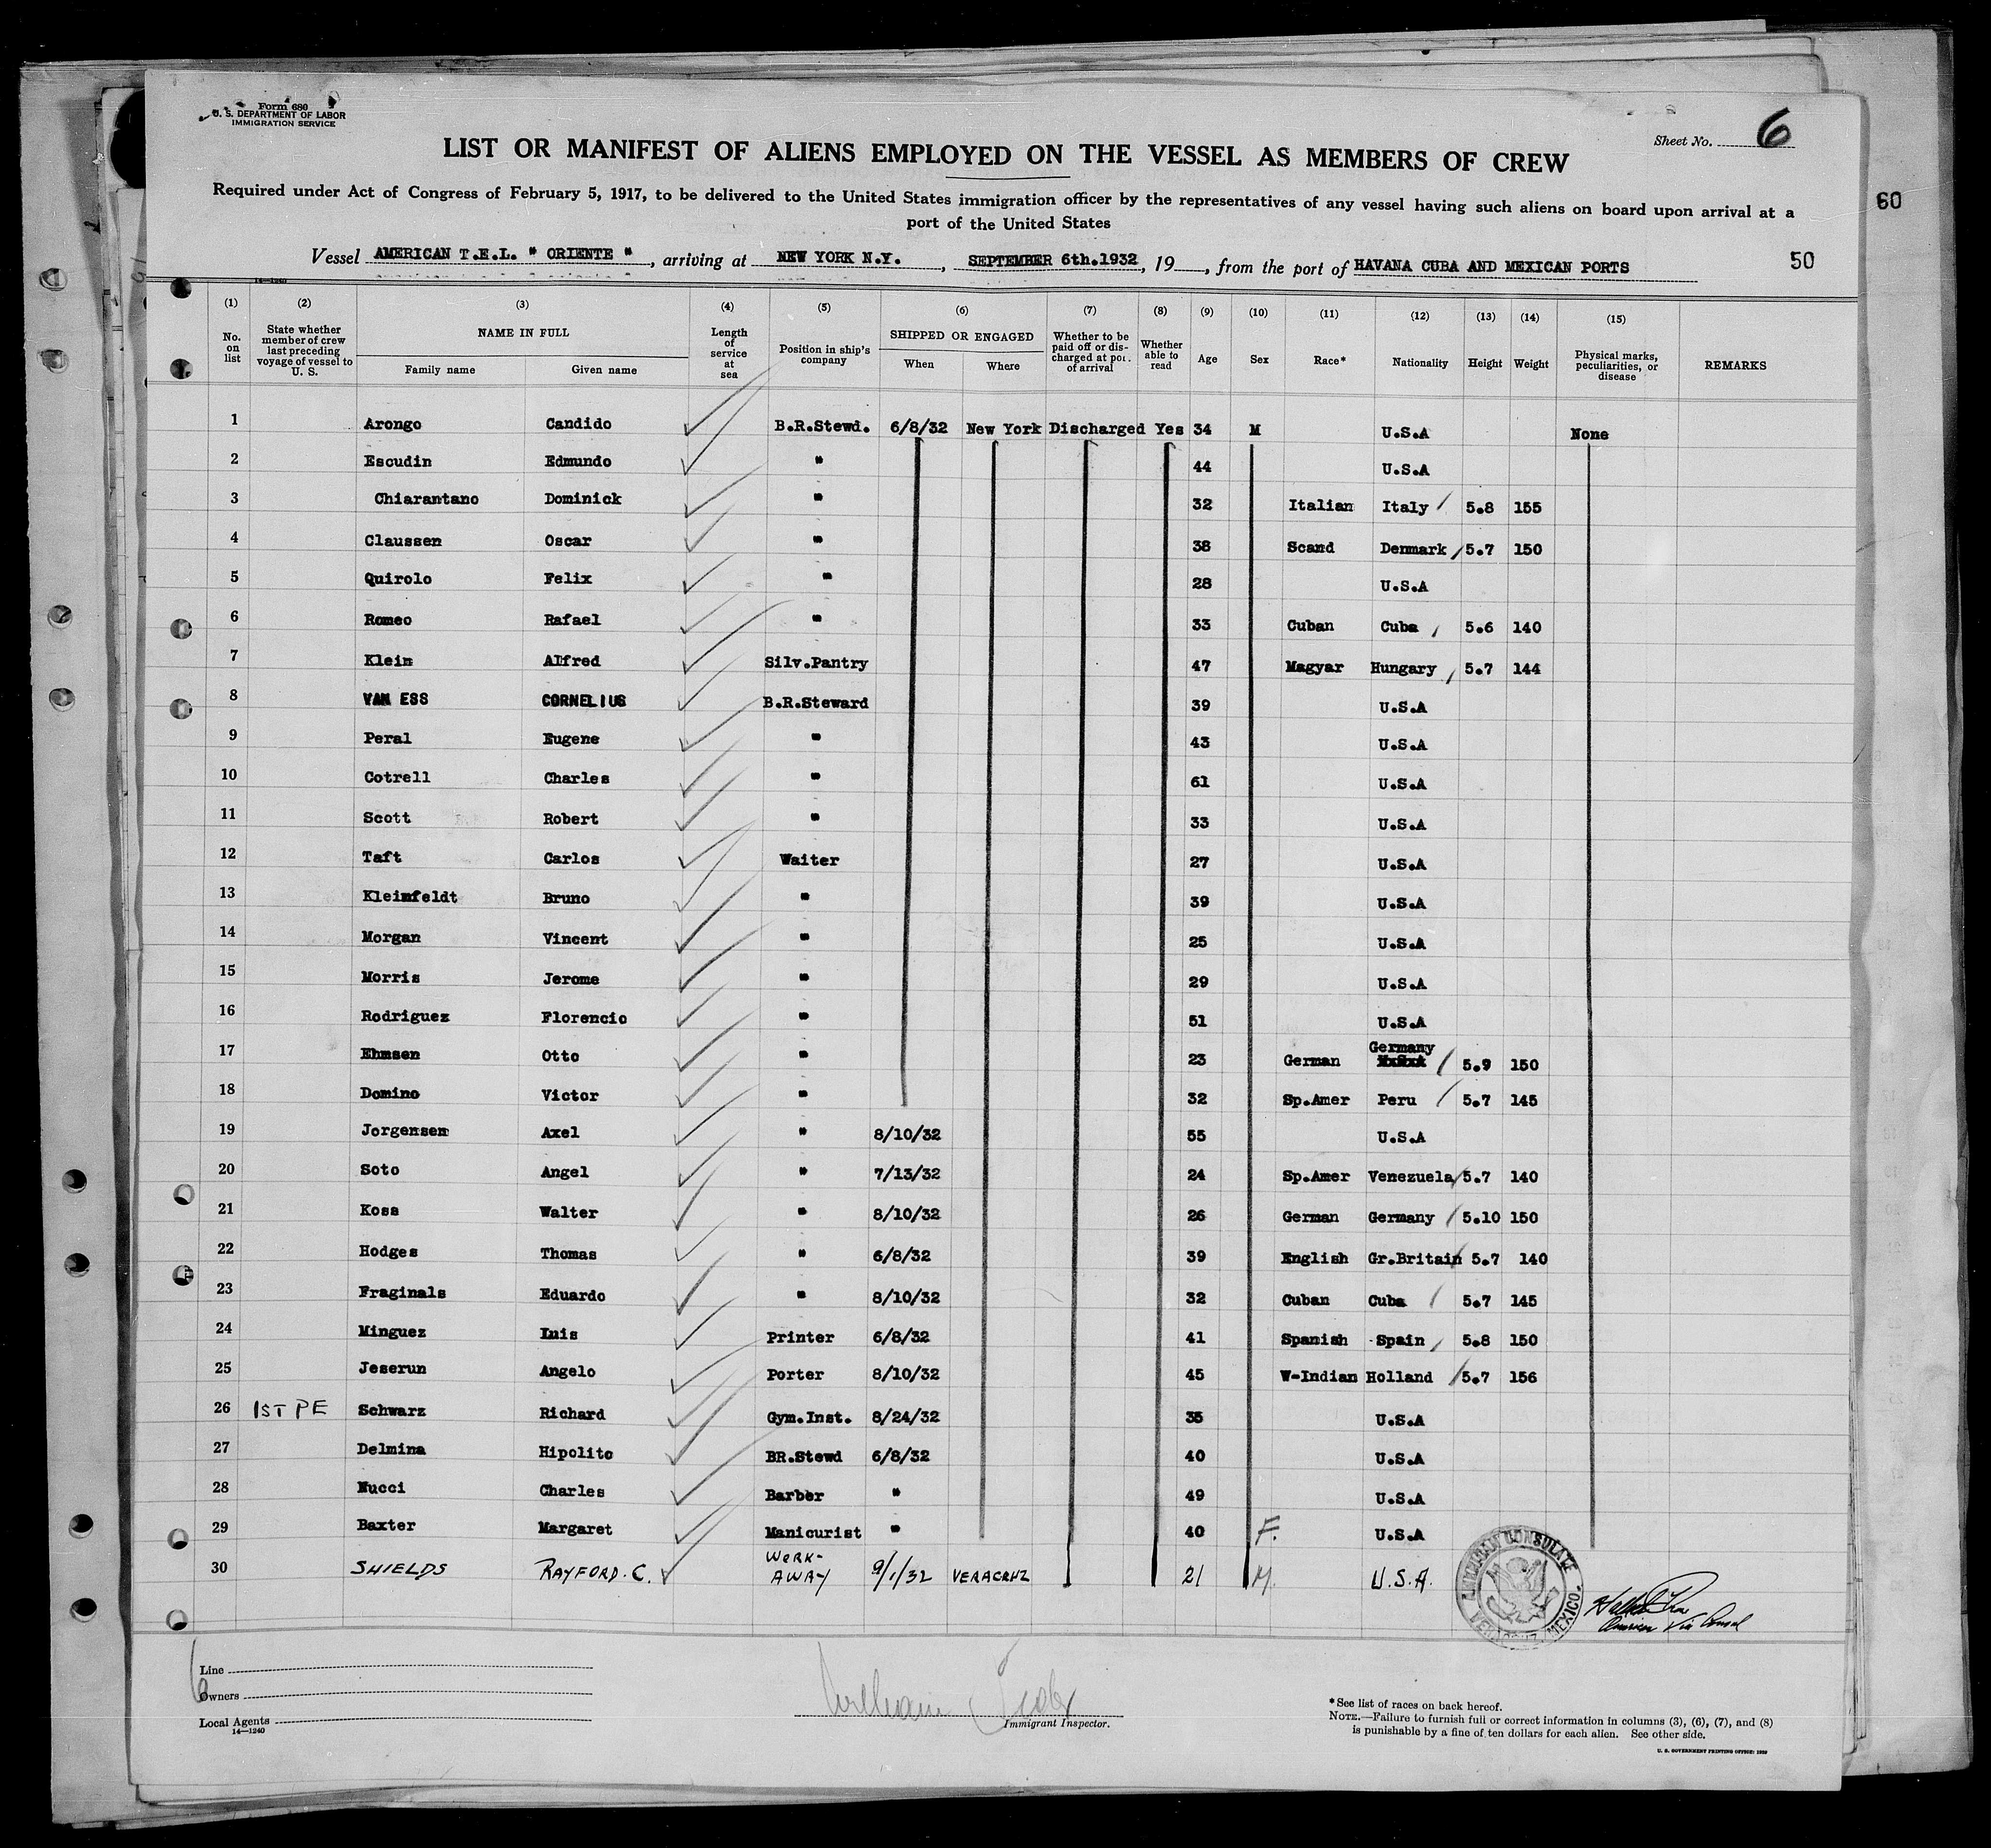 Form 680
U. S. DEPARTMENT OF LABOR
IMMIGRATION SERVICE
Sheet No. 6
LIST OR MANIFEST OF ALIENS EMPLOYED ON THE VESSEL AS MEMBERS OF CREW
Required under Act of Congress of February 5, 1917, to be delivered to the United States immigration officer by the representatives of any vessel having such aliens on board upon arrival at a
port of the United States
60
Vessel AMERICAN T.E.L. " ORIENTE ", arriving at NEW YORK N.Y., SEPTEMBER 6th.1932, 19, from the port of HAVANA CUBA AND MEXICAN PORTS
50
14—1240
(1) (2) (3) (4) (5) (6) (7) (8) (9) (10) (11) (12) (13) (14) (15)
No. on list State whether member of crew last preceding voyage of vessel to U. S. NAME IN FULL Family name Given name Length of service at sea Position in ship's company SHIPPED OR ENGAGED When Where Whether to be paid off or discharged at port of arrival Whether able to read Age Sex Race* Nationality Height Weight Physical marks, peculiarities, or disease REMARKS
1 Arongo Candido B.R.Stewd. 6/8/32 New York Discharged Yes 34 M U.S.A None
2 Escudin Edmundo " 44 U.S.A
3 Chiarantano Dominick " 32 Italian Italy 5.8 155
4 Claussen Oscar " 38 Scand Denmark 5.7 150
5 Quirolo Felix " 28 U.S.A
6 Romeo Rafael " 33 Cuban Cuba 5.6 140
7 Klein Alfred Silv.Pantry 47 Magyar Hungary 5.7 144
8 VAN ESS CORNELIUS B.R.Steward 39 U.S.A
9 Peral Eugene " 43 U.S.A
10 Cotrell Charles " 61 U.S.A
11 Scott Robert " 33 U.S.A
12 Taft Carlos Waiter 27 U.S.A
13 Kleinfeldt Bruno " 39 U.S.A
14 Morgan Vincent " 25 U.S.A
15 Morris Jerome " 29 U.S.A
16 Rodriguez Florencio " 51 U.S.A
17 Ehmsen Otto " 23 German Germany 5.9 150
18 Domino Victor " 32 Sp.Amer Peru 5.7 145
19 Jorgensen Axel " 8/10/32 55 U.S.A
20 Soto Angel " 7/13/32 24 Sp.Amer Venezuela 5.7 140
21 Koss Walter " 8/10/32 26 German Germany 5.10 150
22 Hodges Thomas " 6/8/32 39 English Gr.Britain 5.7 140
23 Fraginals Eduardo " 8/10/32 32 Cuban Cuba 5.7 145
24 Minguez Luis Printer 6/8/32 41 Spanish Spain 5.8 150
25 Jeserun Angelo Porter 8/10/32 45 W-Indian Holland 5.7 156
26 1ST PE Schwarz Richard Gym.Inst. 8/24/32 35 U.S.A
27 Delmina Hipolito BR.Stewd 6/8/32 40 U.S.A
28 Nucci Charles Barber " 49 U.S.A
29 Baxter Margaret Manicurist " 40 F. U.S.A
30 SHIELDS RAYFORD. C. WORK-AWAY 9/1/32 VERACRUZ 21 M. U.S.A.
AMERICAN CONSULATE VERACRUZ, MEXICO.
American Vice Consul
6
Line
Owners
Local Agents
14—1240
William
Immigrant Inspector.
*See list of races on back hereof.
NOTE.—Failure to furnish full or correct information in columns (3), (6), (7), and (8)
is punishable by a fine of ten dollars for each alien. See other side.
U. S. GOVERNMENT PRINTING OFFICE: 1929